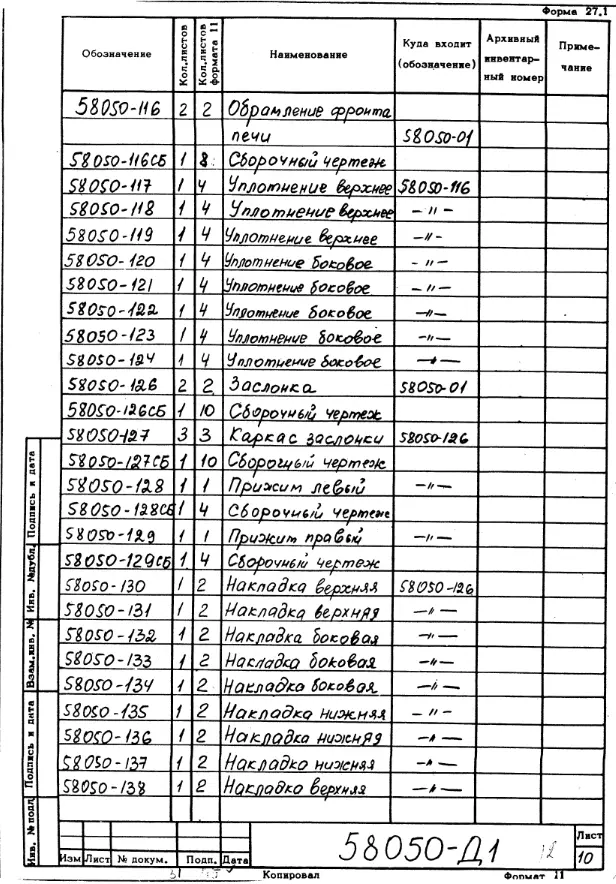 Форма 27.1
Обозначение Кол.листов Кол.листов формата 11 Наименование Куда входит (обозначение) Архивный инвентарный номер Примечание
58050-116 2 2 Обрамление фронта
печи 58050-01
58050-116СБ 1 8 Сборочный чертеж
58050-117 1 4 Уплотнение верхнее 58050-116
58050-118 1 4 Уплотнение верхнее — " —
58050-119 1 4 Уплотнение верхнее — " —
58050-120 1 4 Уплотнение боковое — " —
58050-121 1 4 Уплотнение боковое — " —
58050-122 1 4 Уплотнение боковое — " —
58050-123 1 4 Уплотнение боковое — " —
58050-124 1 4 Уплотнение боковое — " —
58050-126 2 2 Заслонка 58050-01
58050-126СБ 1 10 Сборочный чертеж
58050-127 3 3 Каркас заслонки 58050-126
58050-127СБ 1 10 Сборочный чертеж
58050-128 1 1 Прижим левый — " —
58050-128СБ 1 4 Сборочный чертеж
58050-129 1 1 Прижим правый — " —
58050-129СБ 1 4 Сборочный чертеж
58050-130 1 2 Накладка верхняя 58050-126
58050-131 1 2 Накладка верхняя — " —
58050-132 1 2 Накладка боковая — " —
58050-133 1 2 Накладка боковая — " —
58050-134 1 2 Накладка боковая — " —
58050-135 1 2 Накладка нижняя — " —
58050-136 1 2 Накладка нижняя — " —
58050-137 1 2 Накладка нижняя — " —
58050-138 1 2 Накладка верхняя — " —
Подпись и дата
Инв. № дубл.
Взам.инв. №
Подпись и дата
Инв. № подл.
Изм Лист № докум. Подп. Дата
58050-Д1 12
Лист
10
Копировал Формат 11